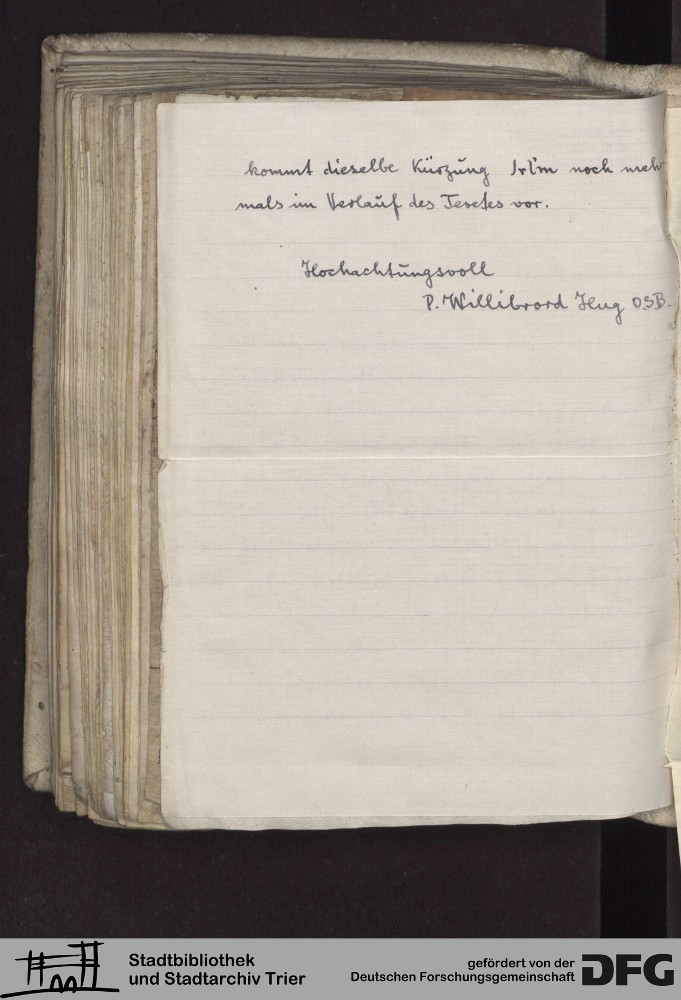 kommt dieselbe Kürzung noch meh
mals im Verlauf des Textes vor.
Hochachtungsvoll
P. Willibrord Hug O.S.B.
Stadtbibliothek
und Stadtarchiv Trier
gefördert von der
Deutschen Forschungsgemeinschaft
DFG